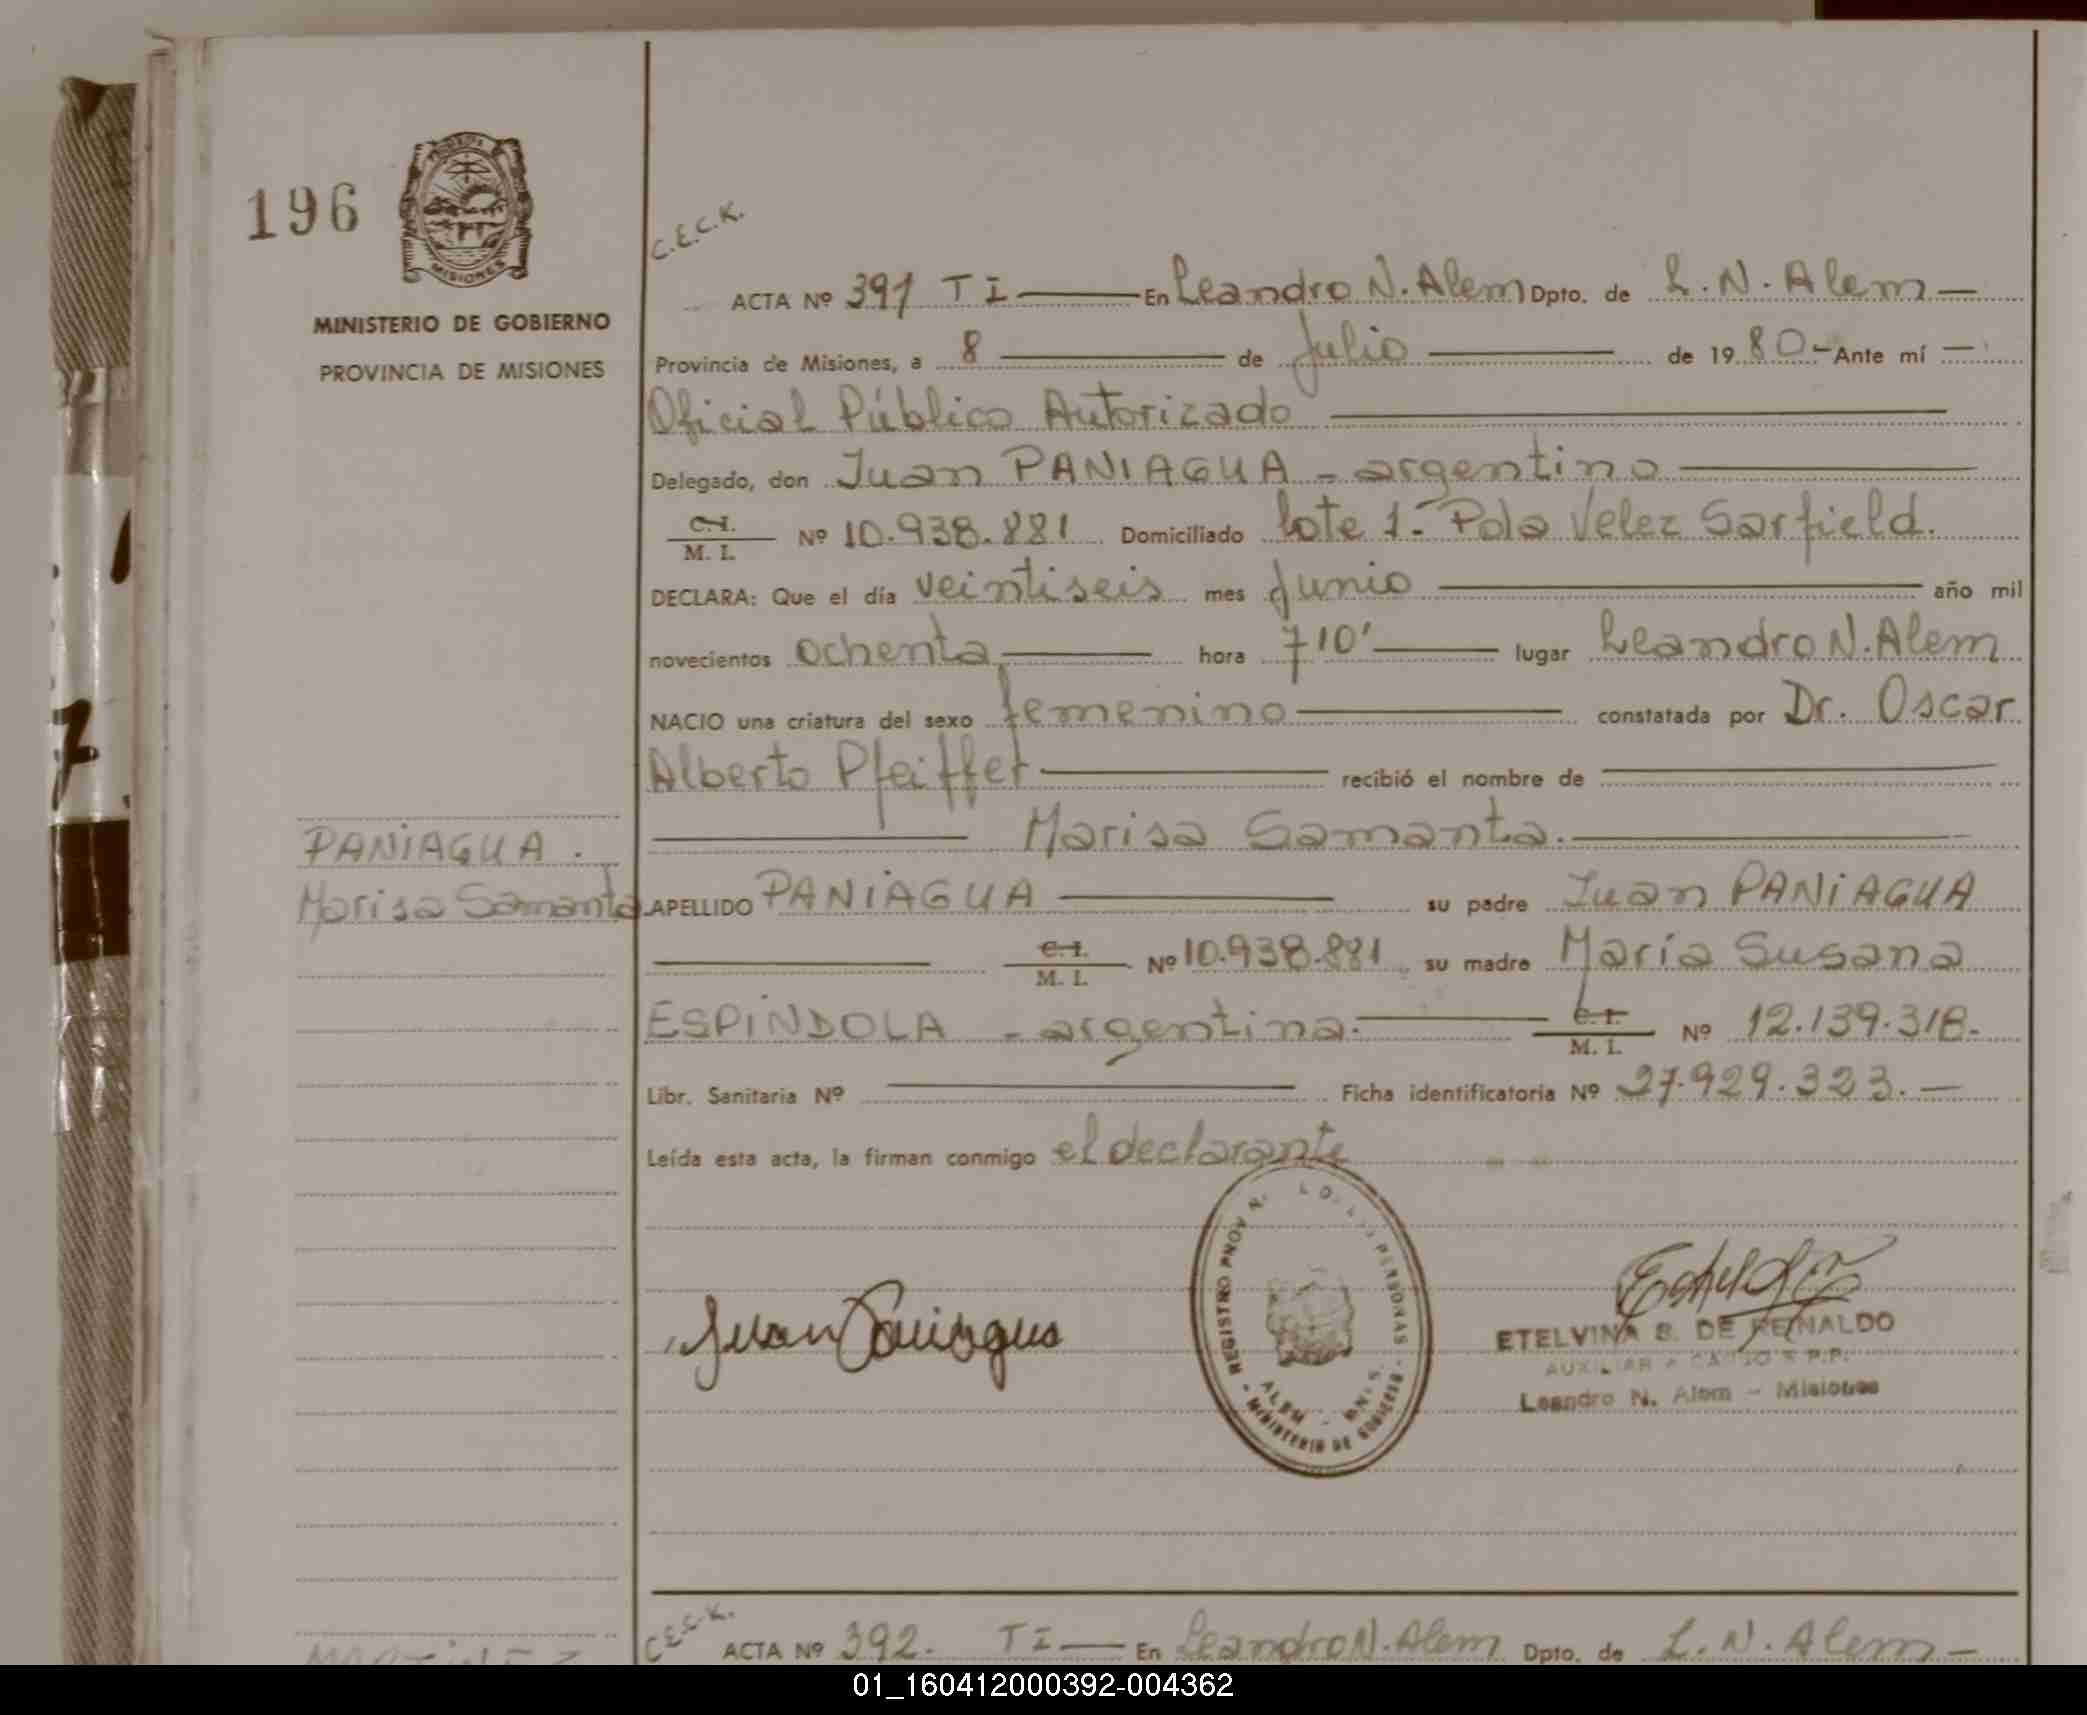 196
MISIONES
MINISTERIO DE GOBIERNO
PROVINCIA DE MISIONES
C.E.C.K.
ACTA Nº 391 T I — En Leandro N. Alem Dpto. de L. N. Alem —
Provincia de Misiones, a 8 — de Julio — de 1980 - Ante mí —
Oficial Público Autorizado
Delegado, don Juan PANIAGUA - argentino
C.I. / M. I. Nº 10.938.881 Domiciliado lote 1.- Pdla Velez Sarfield.
DECLARA: Que el día veintiseis mes Junio — año mil
novecientos ochenta — hora 7 10' — lugar Leandro N. Alem
NACIO una criatura del sexo femenino — constatada por Dr. Oscar
Alberto Pfeiffer — recibió el nombre de —
— Marisa Samanta. —
PANIAGUA.
Marisa Samanta
APELLIDO PANIAGUA — su padre Juan PANIAGUA
— C.I. / M. I. Nº 10.938.881 su madre María Susana
ESPÍNDOLA - argentina. — C.I. / M. I. Nº 12.139.318.
Libr. Sanitaria Nº — Ficha identificatoria Nº 27.929.323. —
Leída esta acta, la firman conmigo el declarante
Juan Paniagua
REGISTRO PROV. PERSONAS - MINISTERIO DE GOBIERNO
ALEM - MNES.
ETELVINA B. DE REINALDO
AUXILIAR A CARGO
Leandro N. Alem - Misiones
C.E.C.K.
ACTA Nº 392. T I — En Leandro N. Alem Dpto. de L. N. Alem —
MARTINEZ
01_160412000392-004362